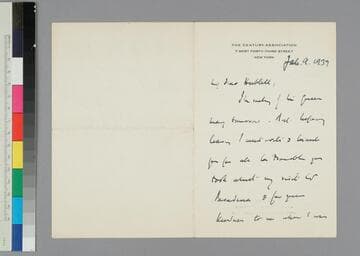 THE CENTURY ASSOCIATION
7 WEST FORTY-THIRD STREET
NEW YORK
Feb. 9. 1939
My dear Hubble,
I'm sailing of the Queen
Mary tomorrow. And before
leaving I must write & thank
you for all the trouble you
took about my visit to
Pasadena & for your
kindness to me when I was